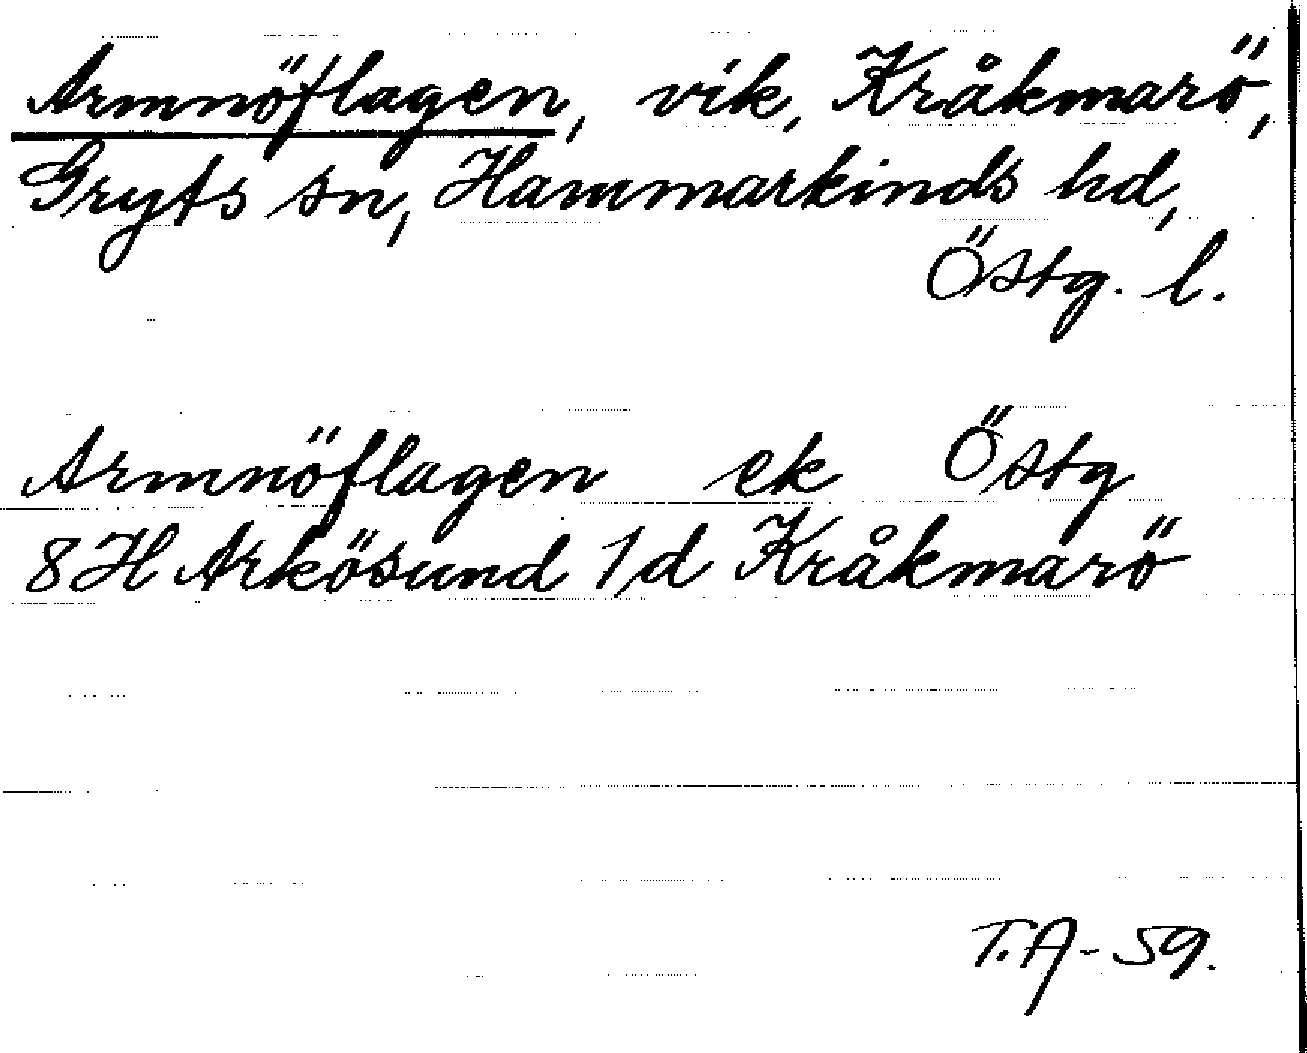 Armnöflagen, vik, Kråkmarö,
Gryts sn, Hammarkinds hd,
Östg. l.
Armnöflagen ek Östg
8H Arkösund 1d Kråkmarö
T.A-59.